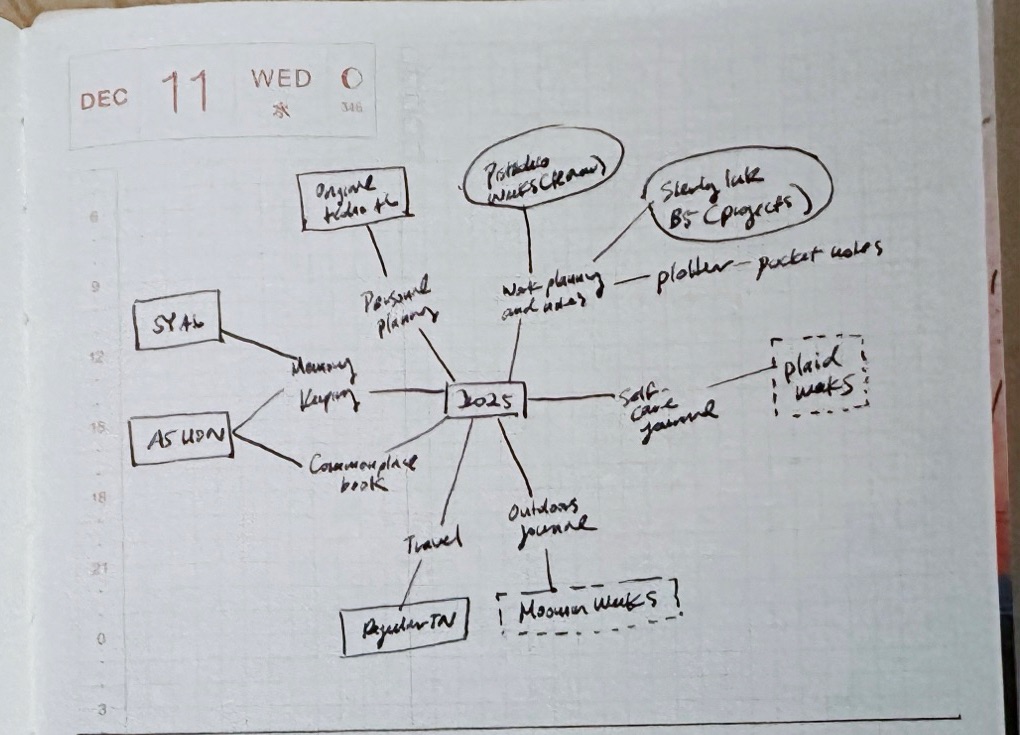 DEC 11 WED
水 346
Original
Techo A6
Pistachio
Weeks
Sterling Ink
B5 (projects)
6
Work planning
and notes
plotter — pocket notes
9
Personal
planning
5Y A6
12
Memory
Keeping
2025
Self-
care
journal
plaid
weeks
15
A5 HON
Commonplace
book
18
Outdoors
journal
Travel
21
Regular TN
Moomin Weeks
0
3